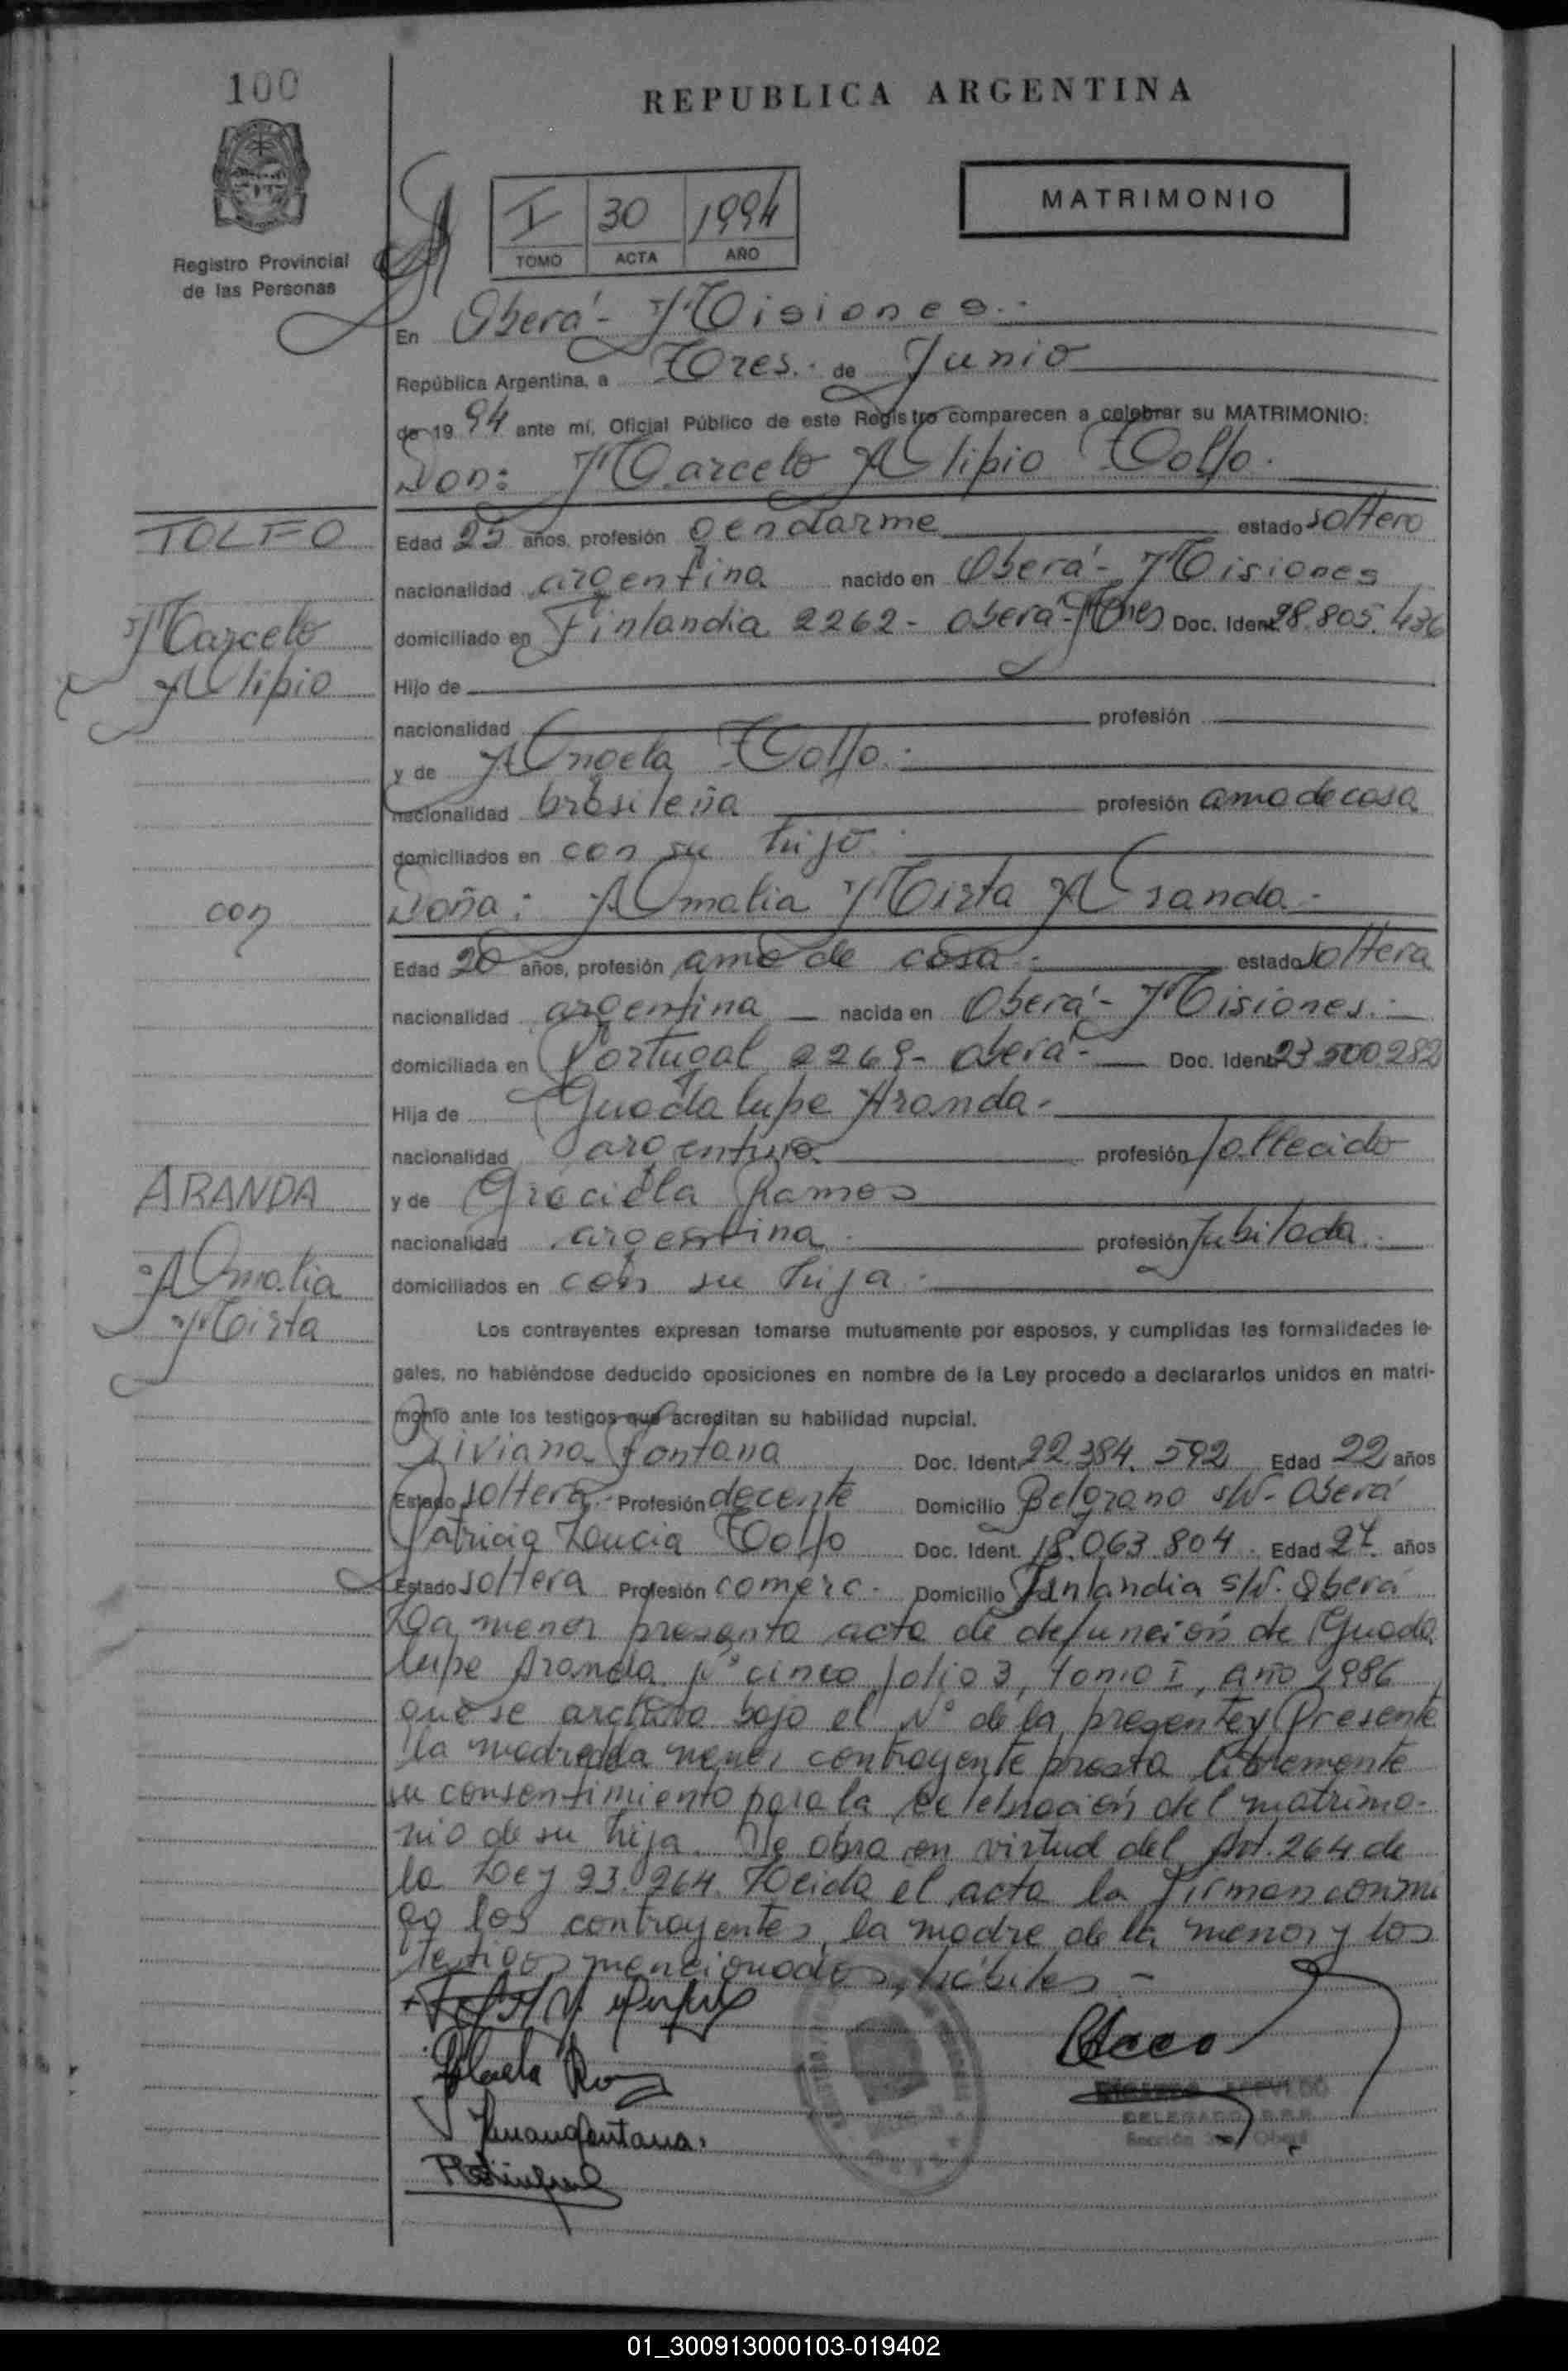 100
REPUBLICA ARGENTINA
Registro Provincial
de las Personas
I 30 1994
TOMO ACTA AÑO
MATRIMONIO
En Oberá - Misiones.-
República Argentina, a Tres.- de Junio
de 19 94 ante mí, Oficial Público de este Registro comparecen a celebrar su MATRIMONIO:
Don: Marcelo Alipio Tolfo.
TOLFO
Marcelo
Alipio
Edad 25 años, profesión gendarme estado soltero
nacionalidad argentina nacido en Oberá - Misiones
domiciliado en Finlandia 2262 - Oberá - Mnes Doc. Ident. 28.805.436
Hijo de
nacionalidad profesión
y de Angela Tolfo.
nacionalidad brasileña profesión ama de casa
domiciliados en con su hijo.
con
Doña: Amalia Mirta Aranda.-
Edad 20 años, profesión ama de casa.- estado soltera
nacionalidad argentina nacida en Oberá - Misiones.-
domiciliada en Portugal 2269 - Oberá - Doc. Ident. 23.500.282
Hija de Guadalupe Aranda.
nacionalidad argentina profesión fallecido
ARANDA
Amalia
Mirta
y de Graciela Ramos
nacionalidad argentina. profesión jubilada.-
domiciliados en con su hija.
Los contrayentes expresan tomarse mutuamente por esposos, y cumplidas las formalidades le-
gales, no habiéndose deducido oposiciones en nombre de la Ley procedo a declararlos unidos en matri-
monio ante los testigos que acreditan su habilidad nupcial.
Viviana Fontana Doc. Ident. 22.384.592 Edad 22 años
Estado soltera.- Profesión docente Domicilio Belgrano s/N - Oberá
Patricia Lucia Tolfo Doc. Ident. 18.063.804. Edad 27. años
Estado soltera Profesión comerc. Domicilio Finlandia s/N. Oberá
La menor presenta acta de defunción de Guada
lupe Aranda N° cinco folio 3, Tomo I, año 1986
que se archiva bajo el N° de la presente y Presente
la madre de la menor contrayente presta libremente
su consentimiento para la celebración del matrimo-
nio de su hija. Se obra en virtud del Art. 264 de
la Ley 23.264. Leida el acta la firman conmi
go los contrayentes, la madre de la menor y los
testigos mencionados, hábiles.-
DELEGADO
Sección Oberá
01_300913000103-019402